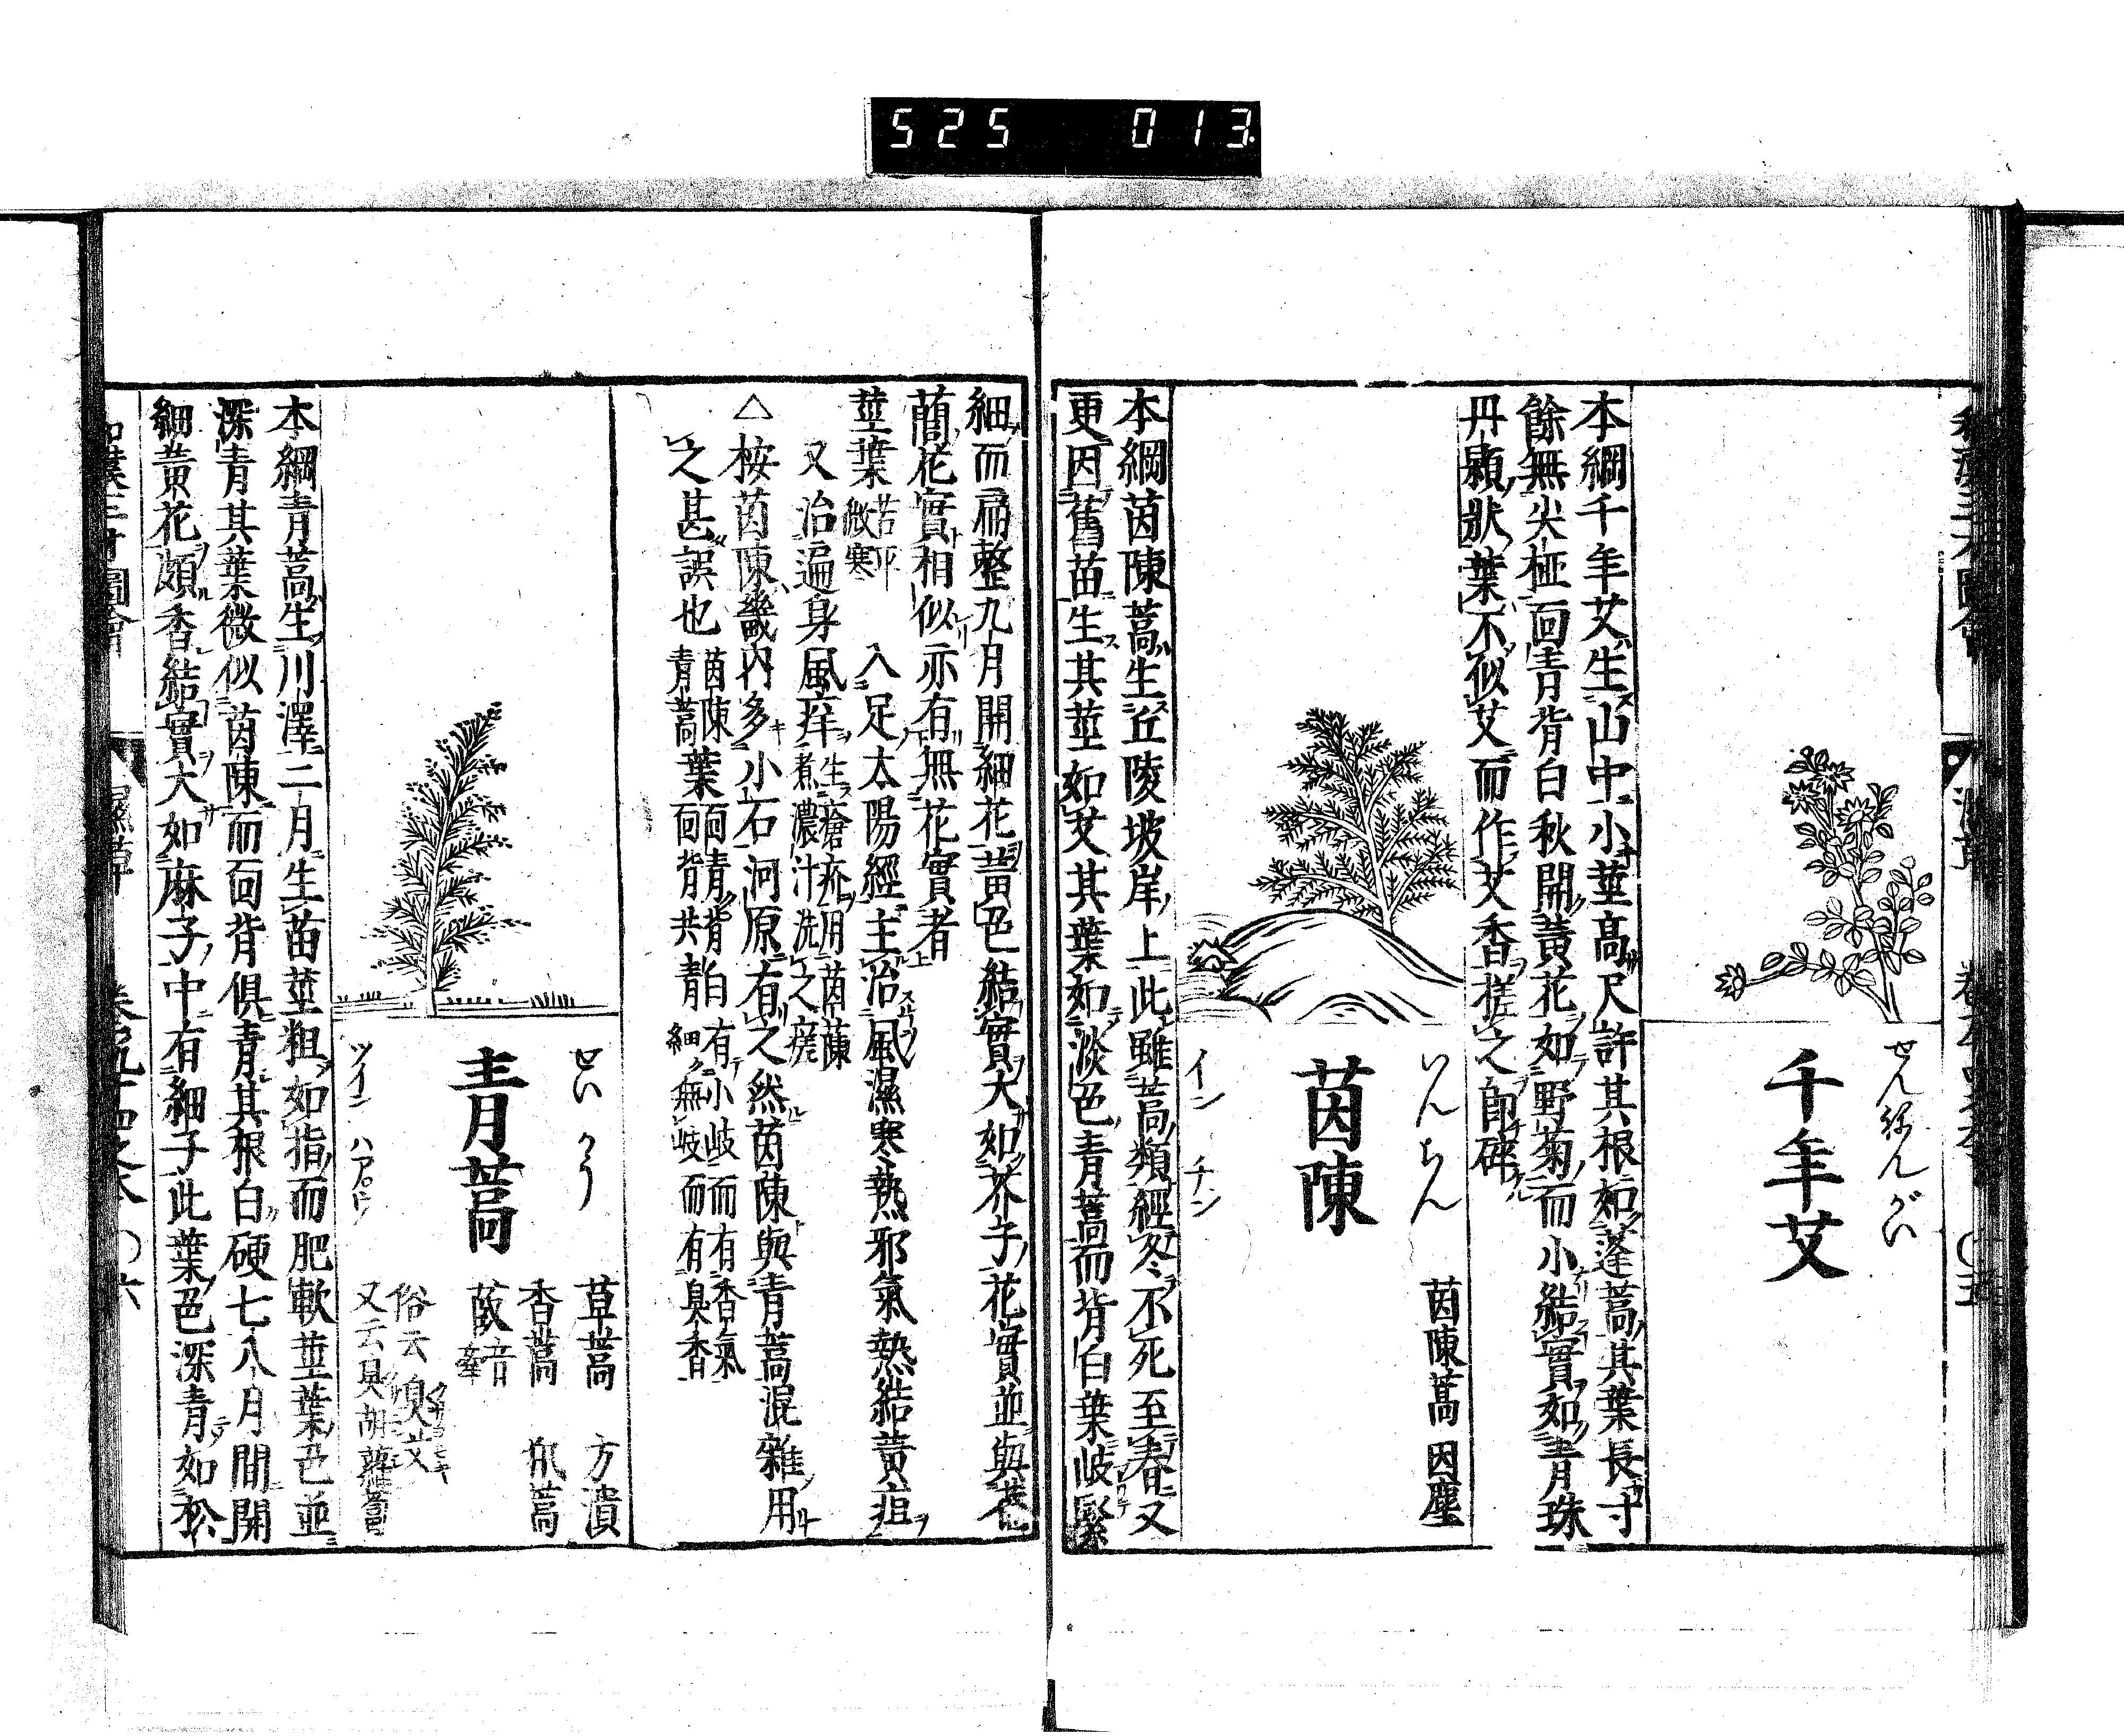 525 013
せんねんがい
千年艾
本綱千年艾生山中小莖高尺許其根如蓬蒿其葉長寸
餘無尖椏面青背白秋開黃花如野菊而小結實如青珠
丹顆狀葉不似艾而作艾香搓之即碎
いんちん
茵陳
イン チン
茵陳蒿 因塵
本綱茵陳蒿生丘陵坡岸上此雖蒿類經冬不死至春又
更因舊苗生其莖如艾其葉如淡色青蒿而背白葉歧緊
細而扁整九月開細花黃色結實大如芥子花實並與菴
䕡花實相似亦有無花實者
莖葉 苦平微寒 入足太陽經主治風濕寒熱邪氣熱結黃疸
又治遍身風痒生瘡疥用茵蔯煮濃汁洗之瘥
△桉茵陳畿內多小石河原有之然茵陳與青蒿混雜用
之甚誤也 茵陳葉面青背白有小岐而有香氣
青蒿葉面背共青細無岐而有臭香
せい かう
青蒿
ツイン ハアロ
草蒿 方潰
香蒿 犱蒿
菣 音牽
俗云臭艾
又云臭胡蘿蔔
本綱青蒿生川澤二月生苗莖粗如指而肥軟莖葉色並
深青其葉微似茵陳而面背俱青其根白硬七八月間開
細黃花頗香結實大如麻子中有細子此葉色深青如松